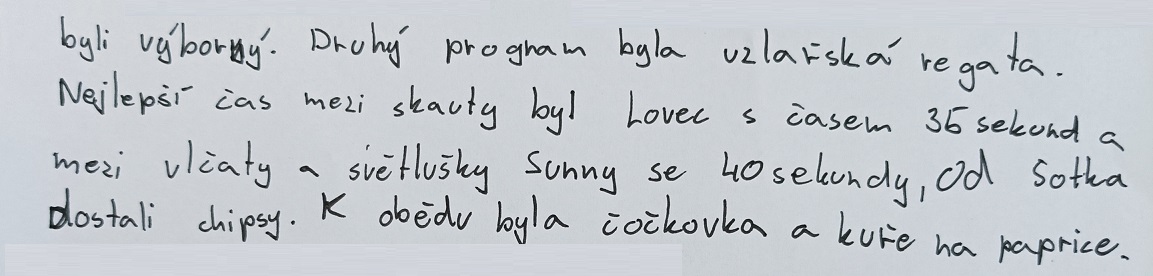 byli výborný. Druhý program byla uzlařská regata.
Nejlepší čas mezi skauty byl Lovec s časem 35 sekund a
mezi vlčaty a světlušky Sunny se 40 sekundy, od Šotka
dostali chipsy. K obědu byla čočkovka a kuře na paprice.